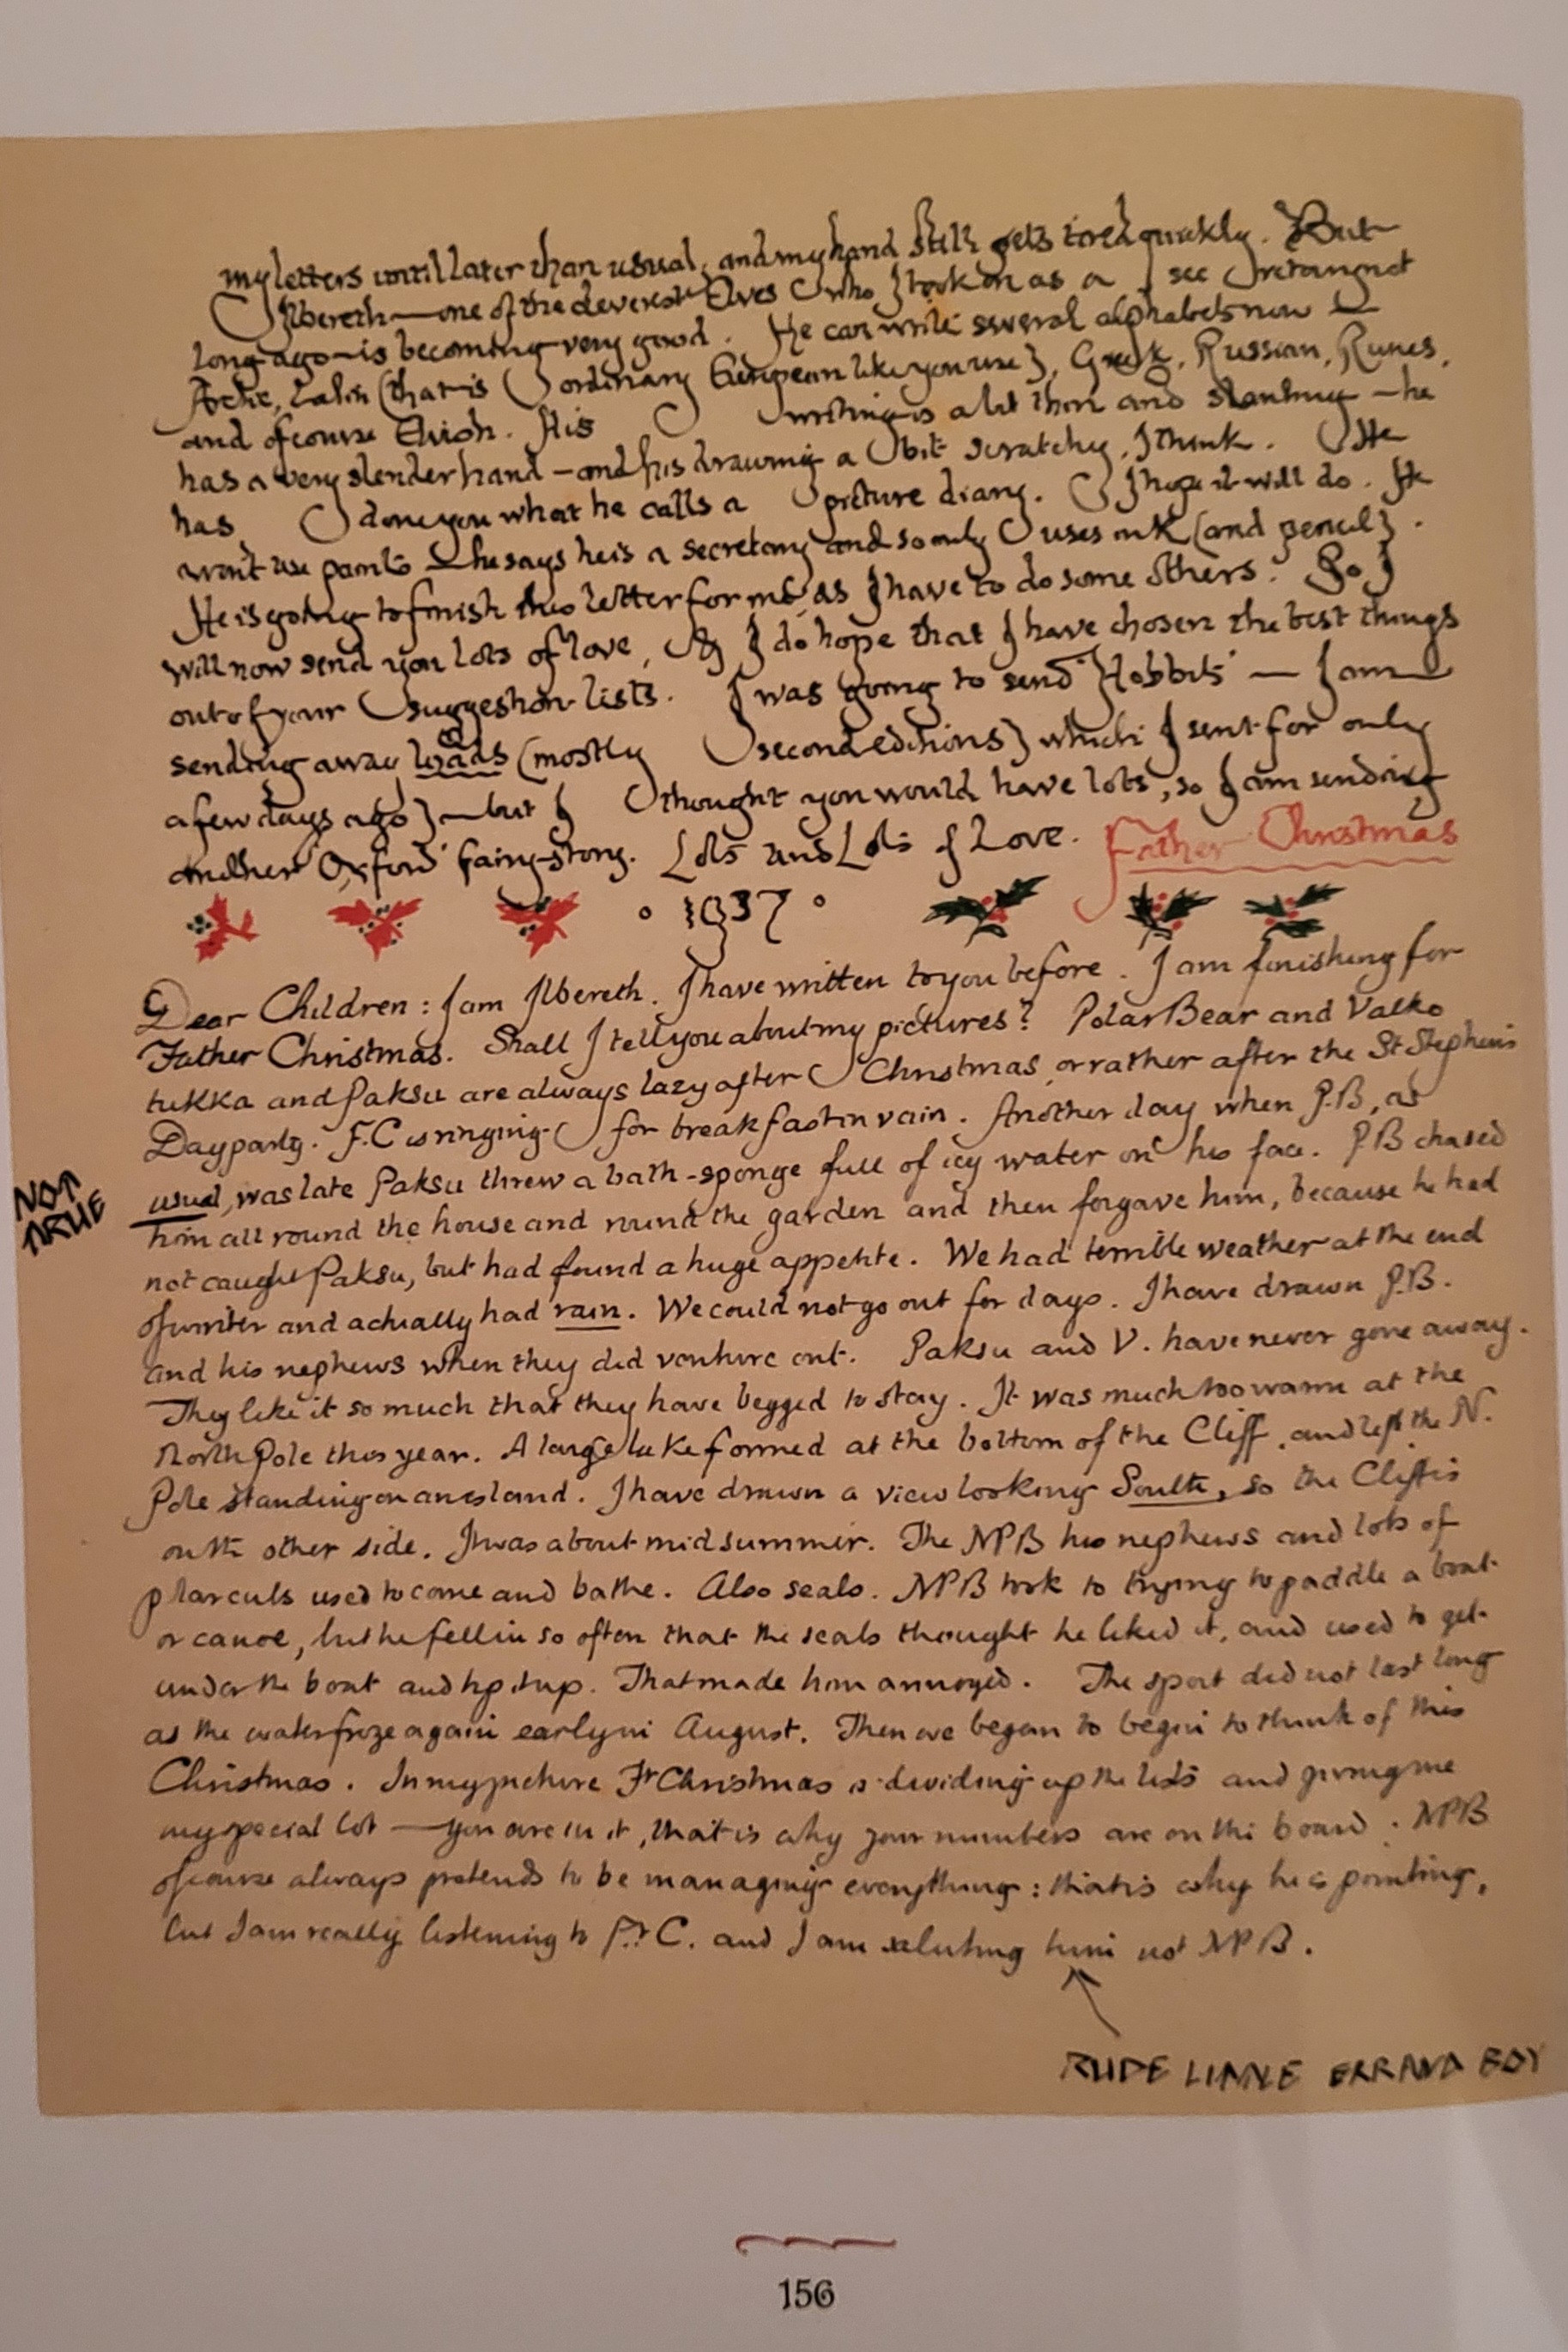 my letters until later than usual, and my hand still gets tired quickly. But
Ilbereth — one of the cleverest Elves who I took on as a secretary not
long ago — is becoming very good. He can write several alphabets now —
Arctic, Latin (that is ordinary European like you use), Greek, Russian, Runes,
and of course Elvish. His writing is a bit thin and slanting — he
has a very slender hand — and his drawing a bit scratchy, I think. He
has done you what he calls a picture diary. I hope it will do. He
won't use paints — he says he is a secretary and so only uses ink (and pencil).
He is going to finish this letter for me, as I have to do some others. So I
will now send you lots of love, & I do hope that I have chosen the best things
out of your suggestion lists. I was going to send 'Hobbits' — I am
sending away loads (mostly second editions) which I sent for only
a few days ago) — but I thought you would have lots, so I am sending
another Oxford Fairy-story. Lots and Lots of Love. Father Christmas
1937
Dear Children: I am Ilbereth. I have written to you before. I am finishing for
Father Christmas. Shall I tell you about my pictures? Polar Bear and Valko
tukka and Paksu are always lazy after Christmas, or rather after the St Stephen's
Day party. F.C is ringing for breakfast in vain. Another day when P.B, as
usual, was late Paksu threw a bath-sponge full of icy water on his face. P.B chased
NOT TRUE
him all round the house and round the garden and then forgave him, because he had
not caught Paksu, but had found a huge appetite. We had terrible weather at the end
of winter and actually had rain. We could not go out for days. I have drawn P.B.
and his nephews when they did venture out. Paksu and V. have never gone away.
They like it so much that they have begged to stay. It was much too warm at the
North Pole this year. A large lake formed at the bottom of the Cliff, and left the N.
Pole standing on an island. I have drawn a view looking South, so the Cliff is
on the other side. It was about midsummer. The NPB his nephews and lots of
plar cubs used to come and bathe. Also seals. NPB took to trying to paddle a boat
or canoe, but he fell in so often that the seals thought he liked it, and used to get
under the boat and tip it up. That made him annoyed. The sport did not last long
as the water froze again early in August. Then we began to begin to think of this
Christmas. In my picture Fr Christmas is dividing up the lists and giving me
my special lot — you are in it, that is why your numbers are on the board. NPB
of course always pretends to be managing everything: that is why he is pointing,
but I am really listening to Fr C. and I am saluting him not NPB.
RUDE LITTLE ERRAND BOY
156